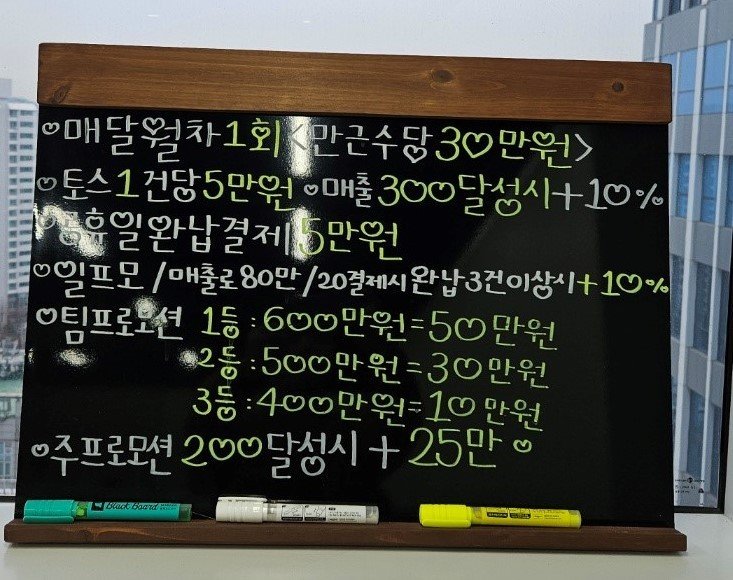 매달월차1회<만근수당30만원>
토스1건당5만원 매출300달성시+10%
공휴일완납결제 5만원
일프모/매출로80만/20결제시완납3건이상시+10%
팀프로모션 1등:600만원=50만원
2등:500만원=30만원
3등:400만원=10만원
주프로모션200달성시+25만
Black Board